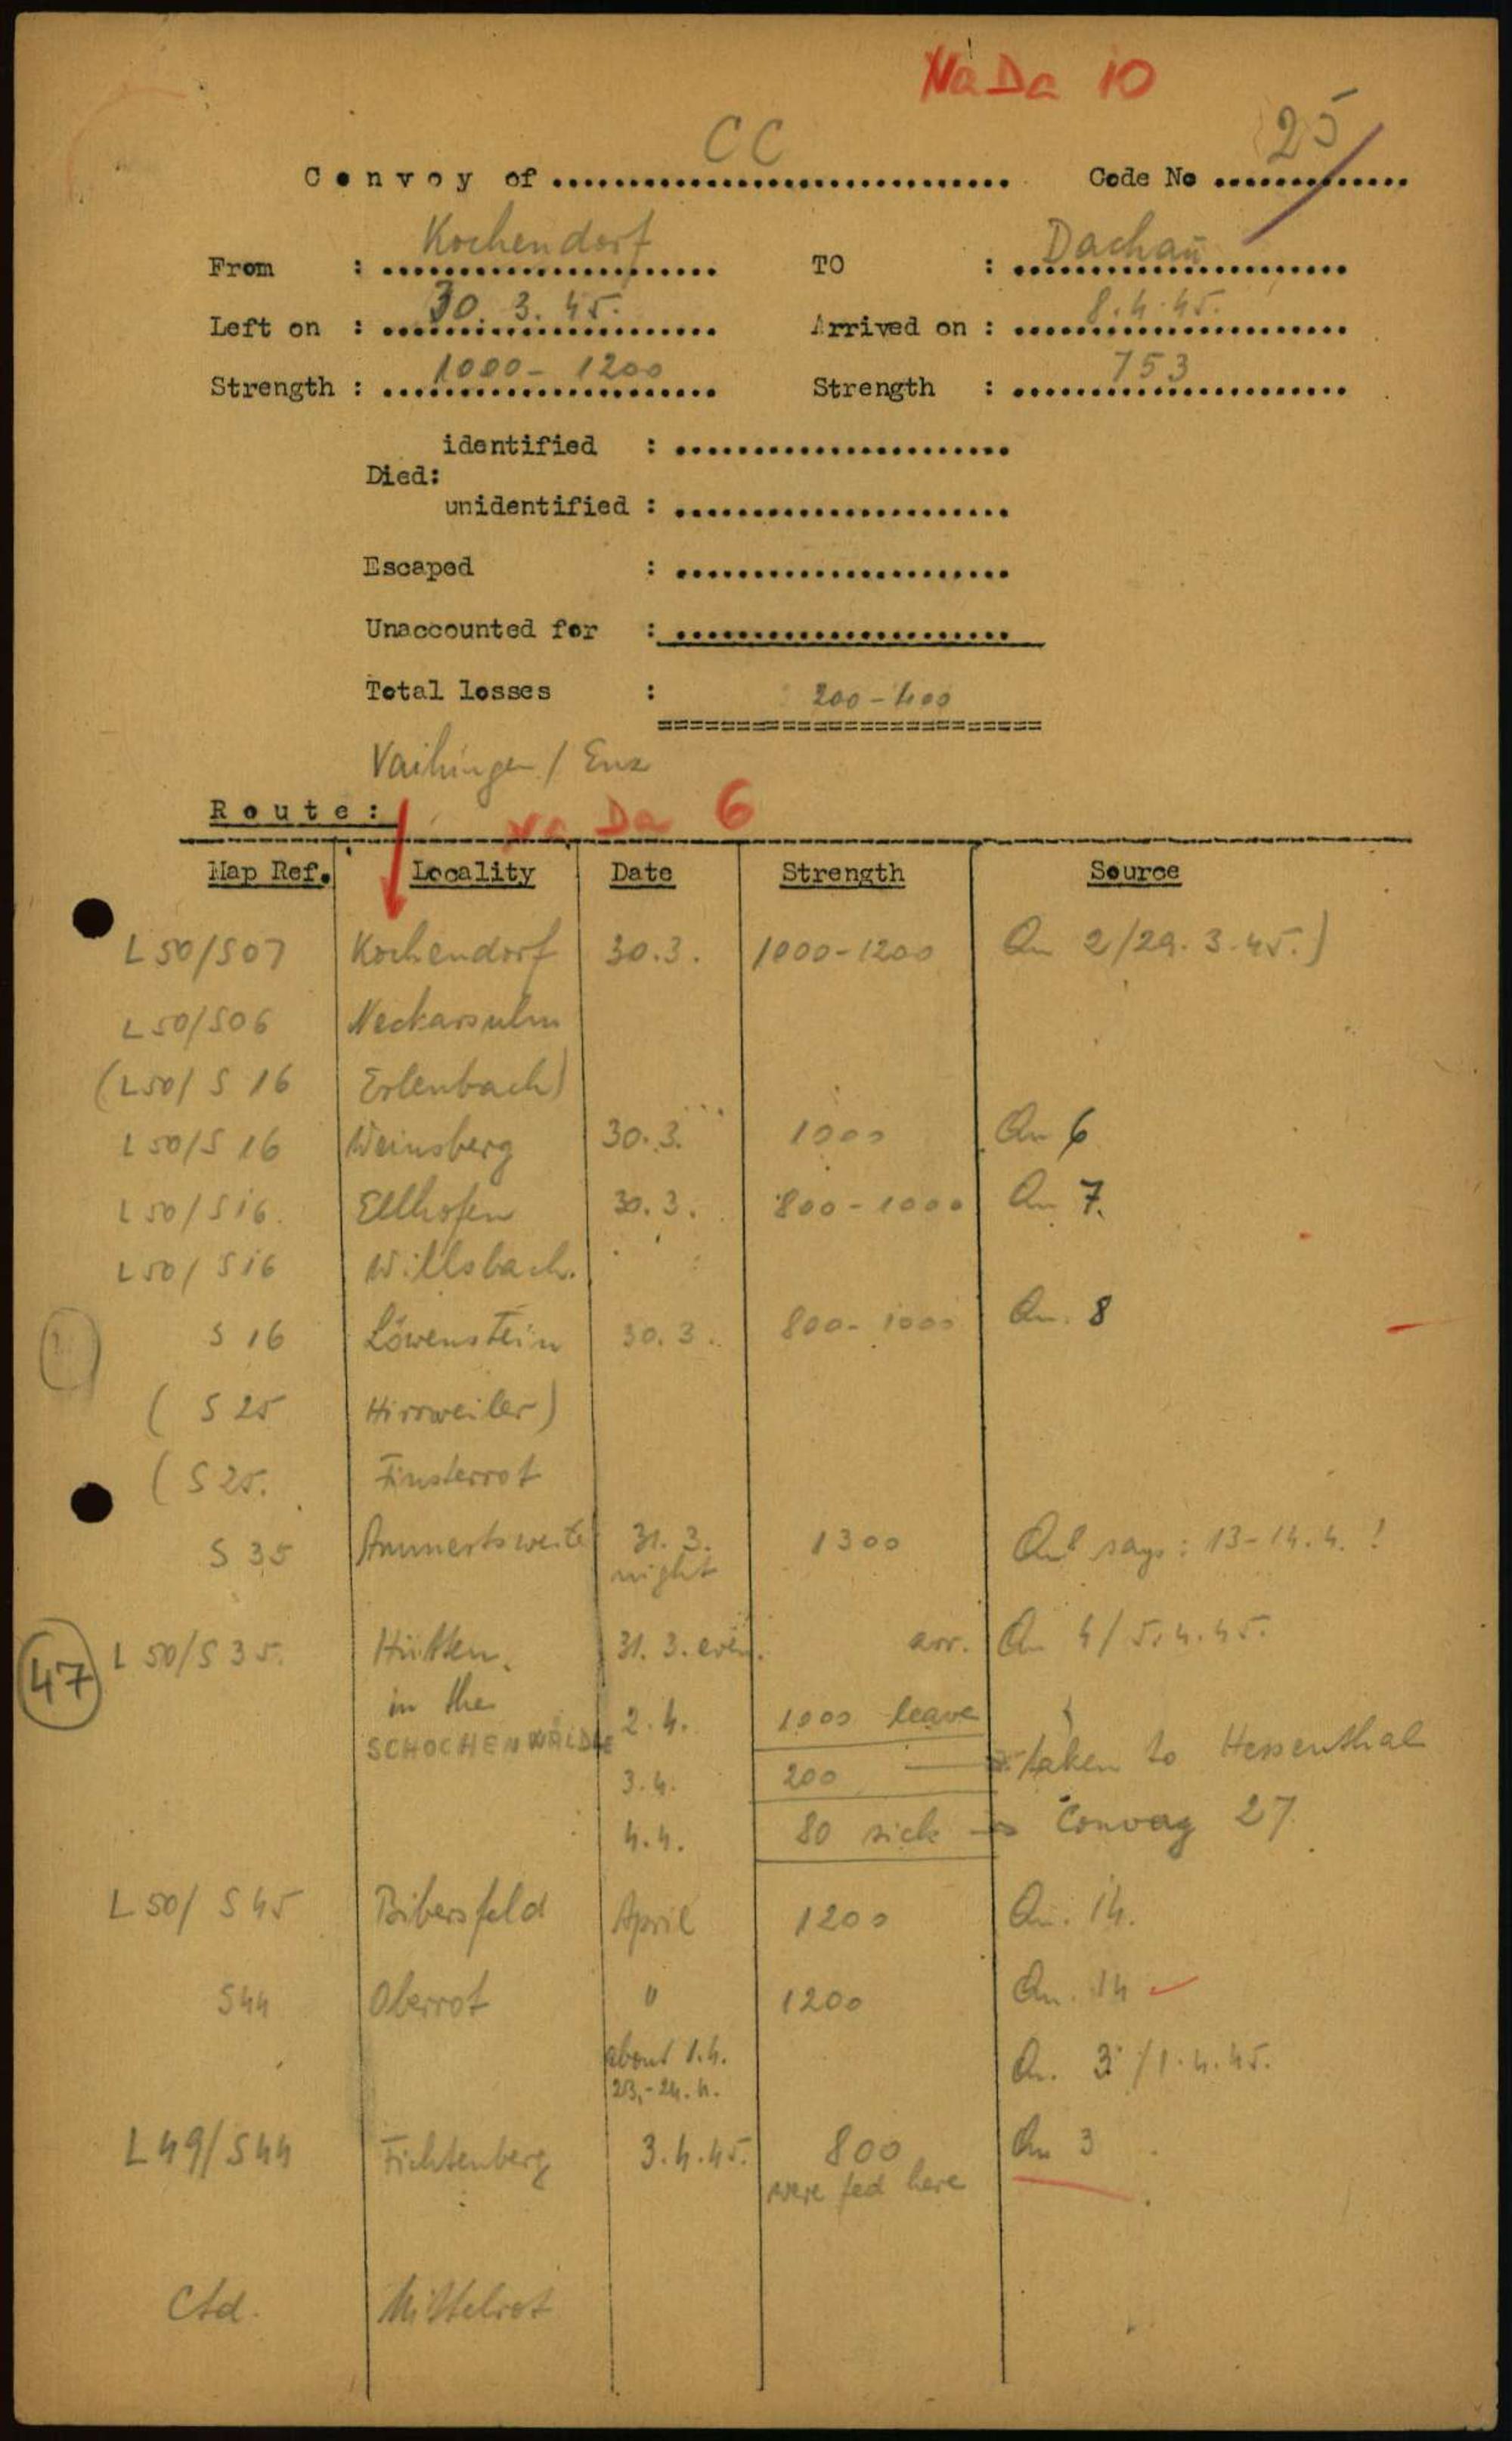 NaDa 10
Convoy of CC Code No 25
From : Kochendorf TO : Dachau
Left on : 30. 3. 45. Arrived on : 8.4.45.
Strength : 1000- 1200 Strength : 753
identified :
Died:
unidentified :
Escaped :
Unaccounted for :
Total losses : 200-400
Vaihingen / Enz
Route: Na Da 6
Map Ref. Locality Date Strength Source
L 50/S07 Kochendorf 30.3. 1000-1200 An 2/29.3.45.)
L 50/S06 Neckarsulm
(L50/ S 16 Erlenbach)
L 50/S 16 Weinsberg 30.3. 1000 An 6
L 50/S16. Ellhofen 30.3. 800-1000 An 7.
L 50/ S16 Willsbach.
S 16 Löwenstein 30.3. 800-1000 An. 8
( S 25 Hirrweiler)
( S 25. Finsterrot
S 35 Ammertsweiler 31. 3. 1300 says: 13-14.4. !
night
47 L 50/S 35. Hütten. 31. 3. even. arr. An 4/5.4.45.
in the 2.4. 1000 leave
SCHOCHENWÄLDLE
3.4. 200 taken to Hessenthal
4.4. 80 sick Convoy 27.
L 50/ S45 Bibersfeld April 1200 An. 14.
S44 Oberrot " 1200 An. 14
about 1.4. An. 3 /1.4.45.
23.-24.4.
L49/S44 Fichtenberg 3.4.45. 800 An 3
were fed here
Ctd. Mittelrot